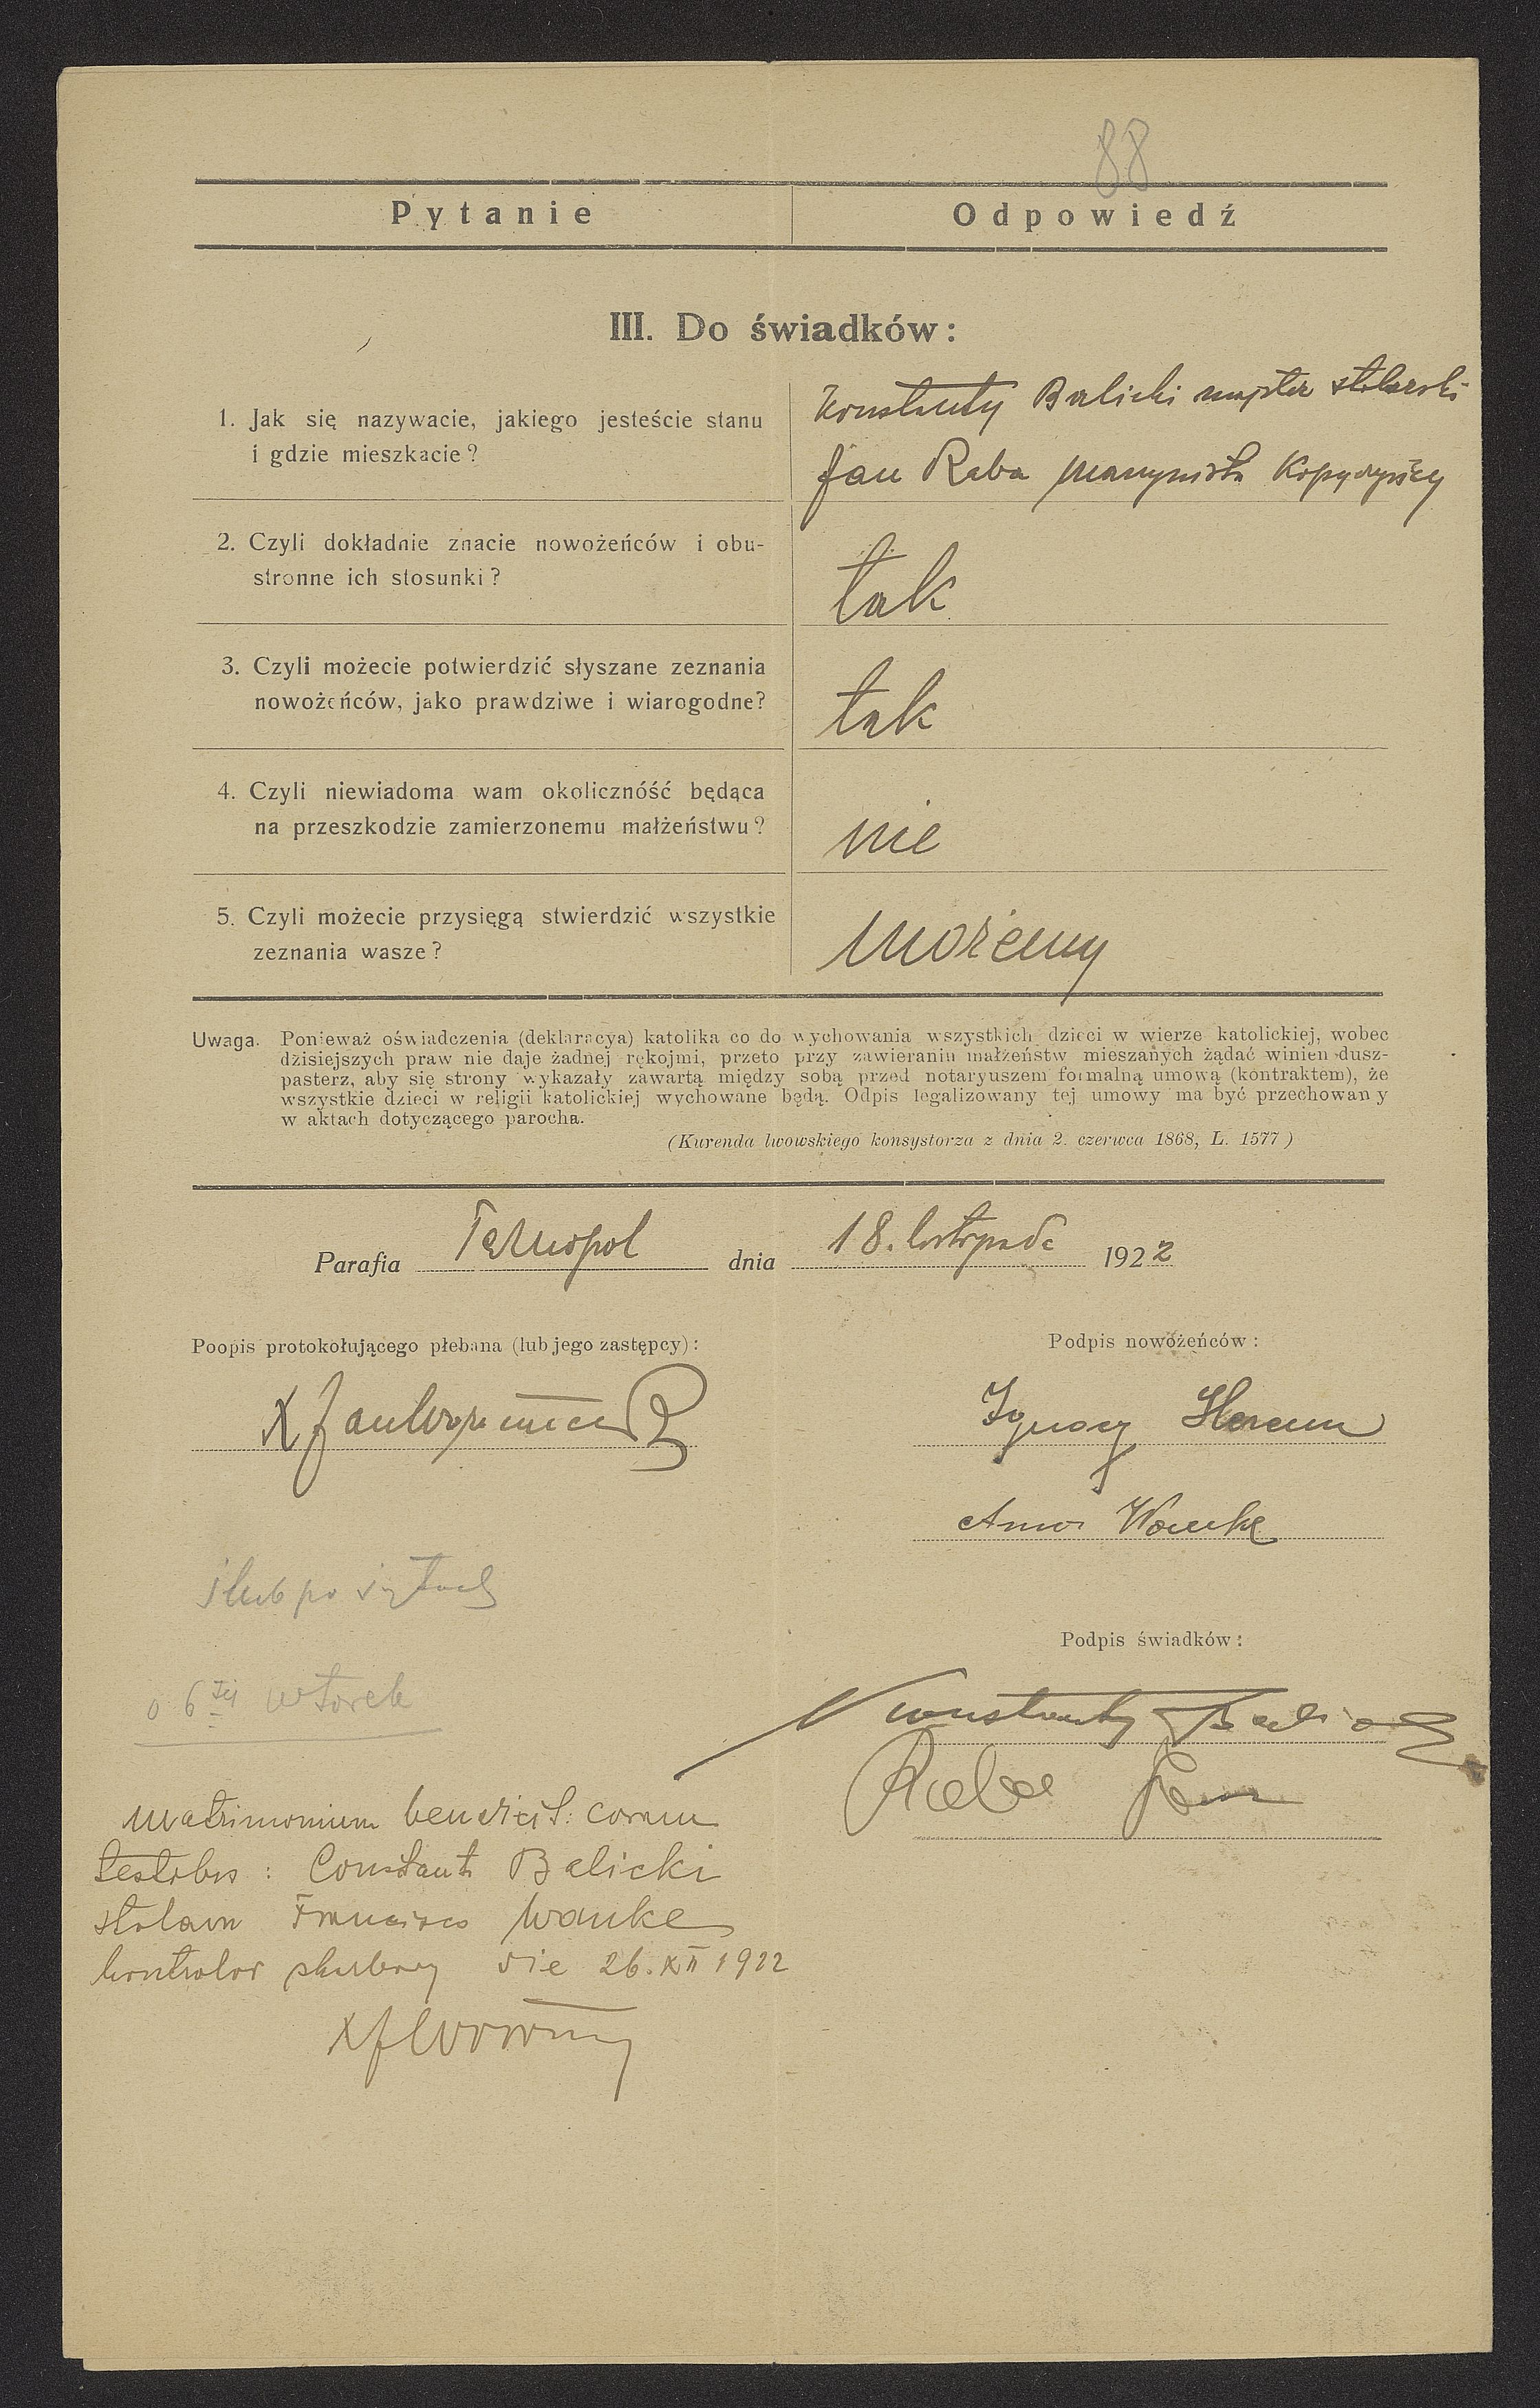 88
Pytanie
Odpowiedź
III. Do świadków:
1. Jak się nazywacie, jakiego jesteście stanu
i gdzie mieszkacie?
Konstanty Balicki majster stolarski
Jan Raba maszynista
2. Czyli dokładnie znacie nowożeńców i obu-
stronne ich stosunki?
tak
3. Czyli możecie potwierdzić słyszane zeznania
nowożeńców, jako prawdziwe i wiarogodne?
tak
4. Czyli niewiadoma wam okolicznóść będąca
na przeszkodzie zamierzonemu małżeństwu?
nie
5. Czyli możecie przysięgą stwierdzić wszystkie
zeznania wasze?
możemy
Uwaga. Ponieważ oświadczenia (deklaracya) katolika co do wychowania wszystkich dzieci w wierze katolickiej, wobec
dzisiejszych praw nie daje żadnej rękojmi, przeto przy zawieraniu małżeństw mieszanych żądać winien dusz-
pasterz, aby się strony wykazały zawartą między sobą przed notaryuszem formalną umową (kontraktem), że
wszystkie dzieci w religii katolickiej wychowane będą. Odpis legalizowany tej umowy ma być przechowany
w aktach dotyczącego parocha.
(Kurenda lwowskiego konsystorza z dnia 2. czerwca 1868, L. 1577)
Parafia Tarnopol dnia 18. listopada 1922
Poopis protokołującego plebana (lub jego zastępcy):
Podpis nowożeńców:
X Jan
Ignacy
Anna Wanke
ślub po świętach
o 6tej wtorek
Podpis świadków:
Konstanty Balicki
Raba Jan
Matrimonium benedixit: coram
testibus: Constant Balicki
stolarz Francisco Wanke
kontrolor skarbowy die 26. XII 1922